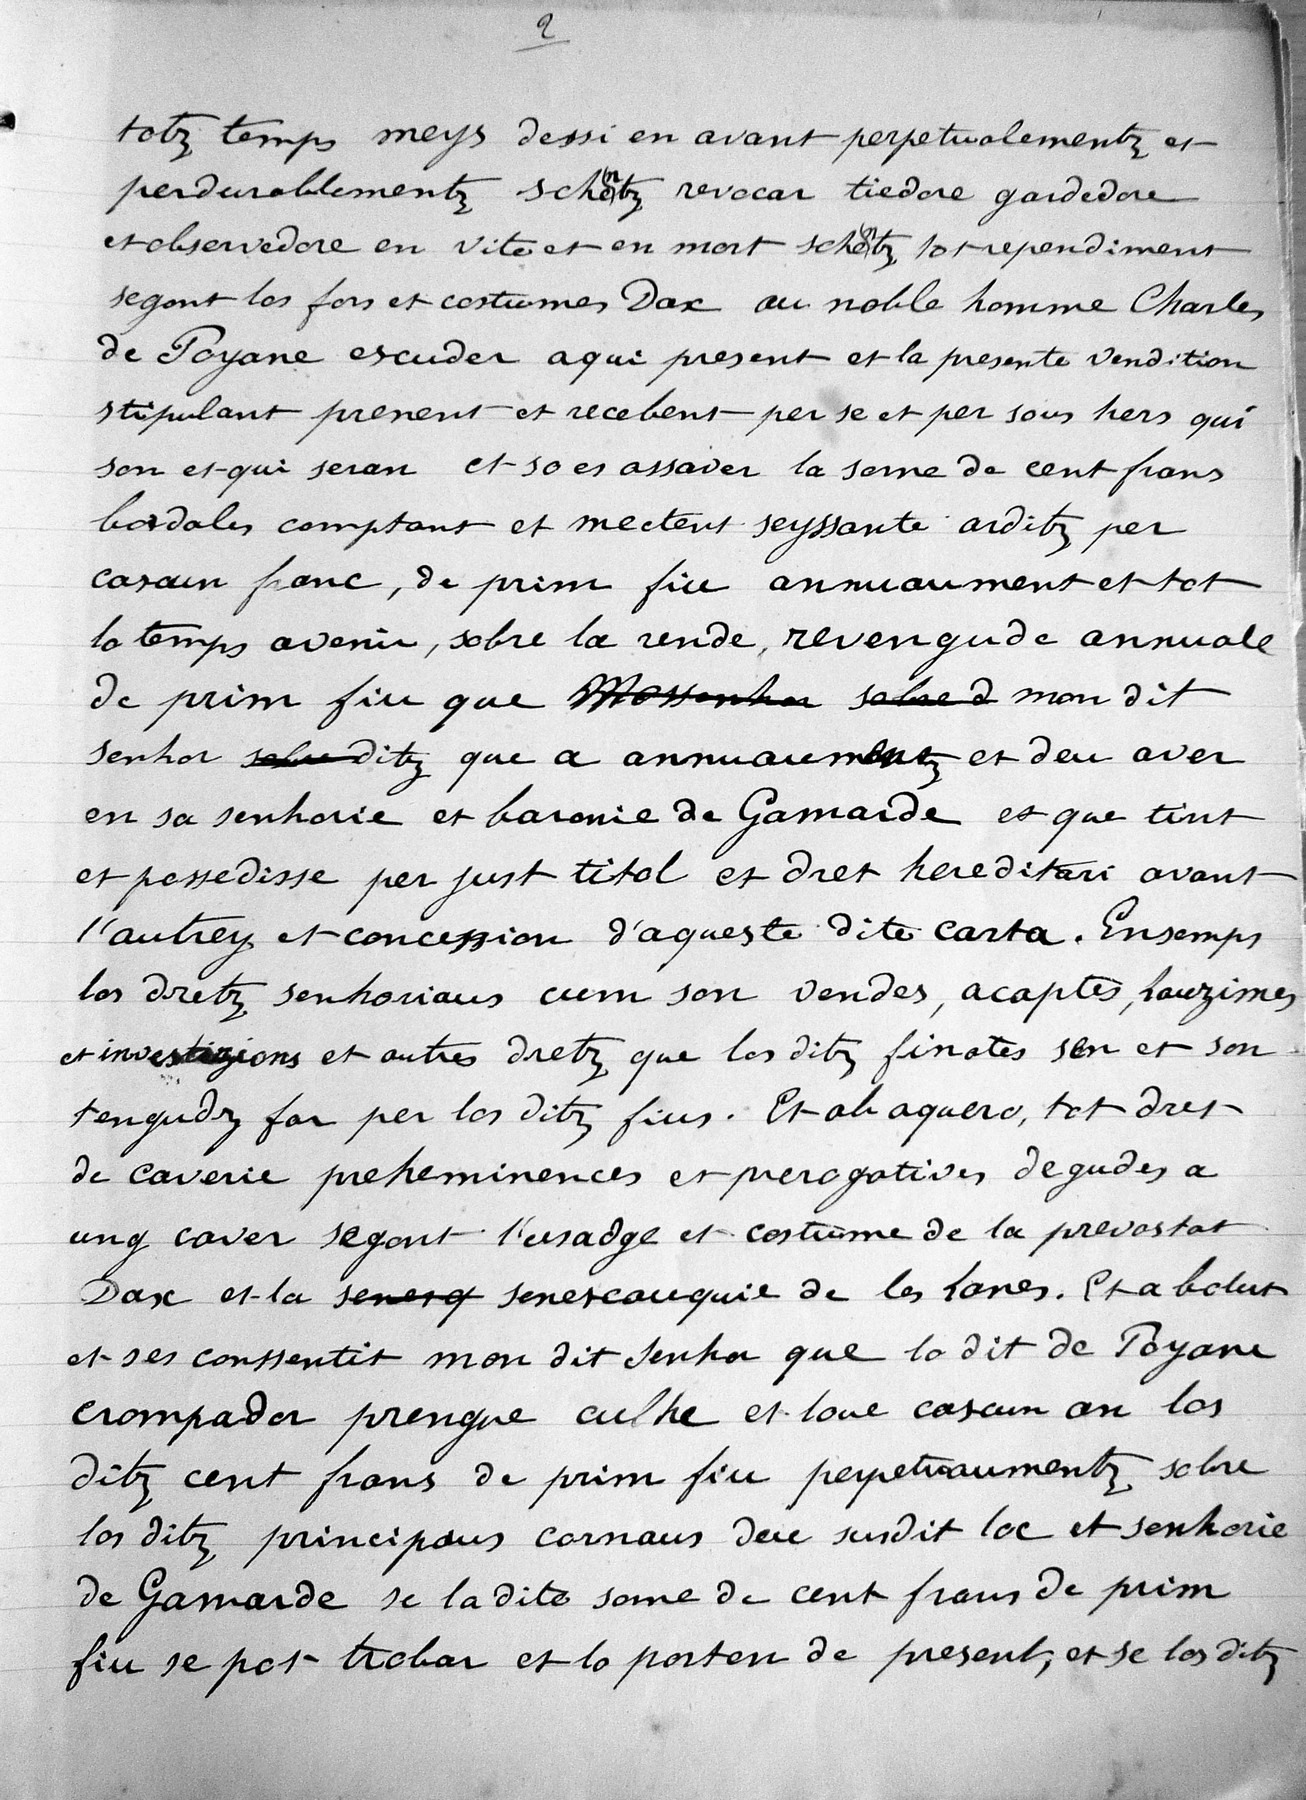 2
totz temps meys dessi en avant perpetualementz et
perdurablementz schentz revocar tiedore gardedore
et observedore en vite et en mort schentz tot rependiment
segont los fors et costumes Dax au noble homme Charles
de Poyane escuder aqui present et la presente vendition
stipulant prenent et recebent per se et per sous hers qui
son et qui seran et so es assaver la some de cent francs
bordales comptant et mectent seyssante arditz per
cascun franc, de prim fiu annuaument et tot
lo temps avenir, sobre la rende, revengude annuale
de prim fiu que Mossenhor sobre d mon dit
senhor sobre ditz que a annuaumentz et deu aver
en sa senhorie et baronie de Gamarde et que tint
et possedisse per just titol et dret hereditari avant
l'autrey et concession d'aqueste dite carta. Ensemps
los dretz senhoriaus cum son vendes, acaptes, lauzimes
et investizions et autres dretz que los ditz finates sen et son
tengudz far per los ditz fius. Et ab aquero, tot dret
de caverie preheminences et prerogatives degudes a
ung caver segont l'usadge et costume de la prevostat
Dax et la senesq senescauquie de les Lanes. Et a bolut
et ses conssentit mon dit senhor que lo dit de Poyane
crompador prengue culhe et leve cascun an los
ditz cent francs de prim fiu perpetuaumentz sobre
los ditz principaus cornaus deu susdit loc et senhorie
de Gamarde se la dite some de cent francs de prim
fiu se pot trobar et lo porten de present, et se los ditz